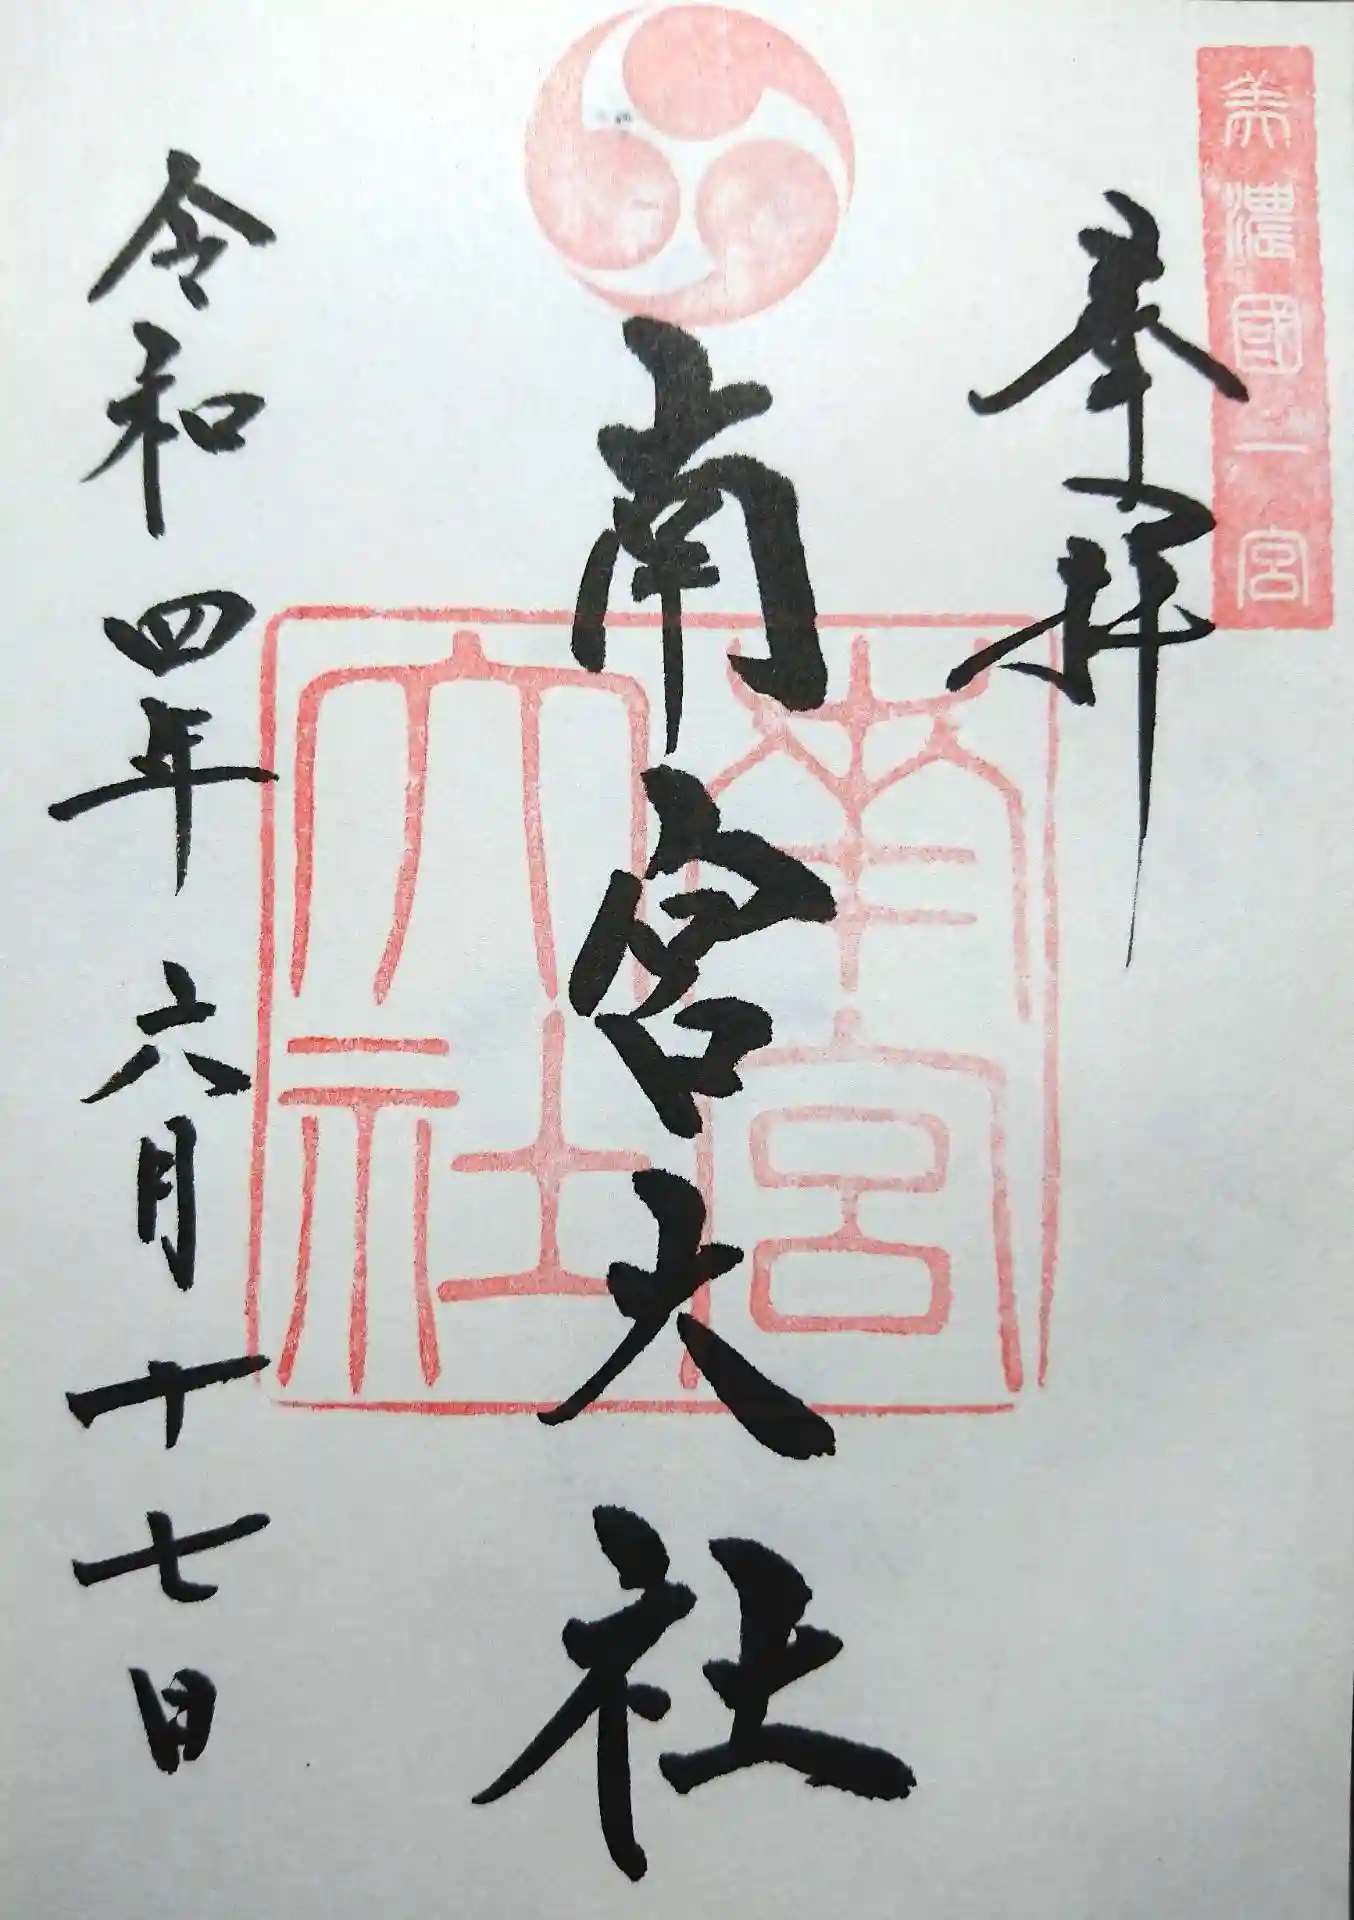 美濃國一宮
奉拝
南宮大社
南宮
大社
令和四年六月十七日